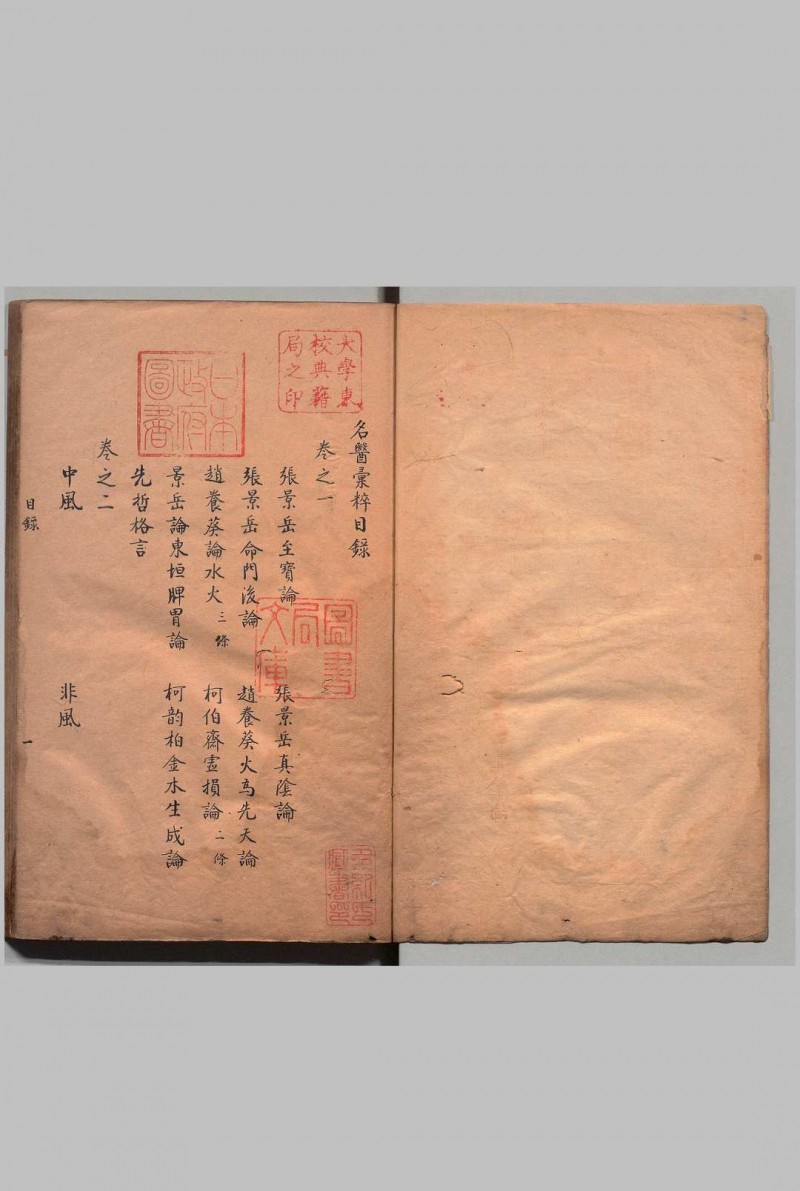 名醫彙粹目錄
卷之一
張景岳至寶論
張景岳真陰論
張景岳命門後論
趙養葵火為先天論
趙養葵論水火三條
柯伯齋虛損論二條
景岳論東垣脾胃論
柯韵柏金水生成論
先哲格言
卷之二
中風
非風
目錄
一
大學東
校典籍
局之印
日本
政府
圖書
圖書
局
文庫